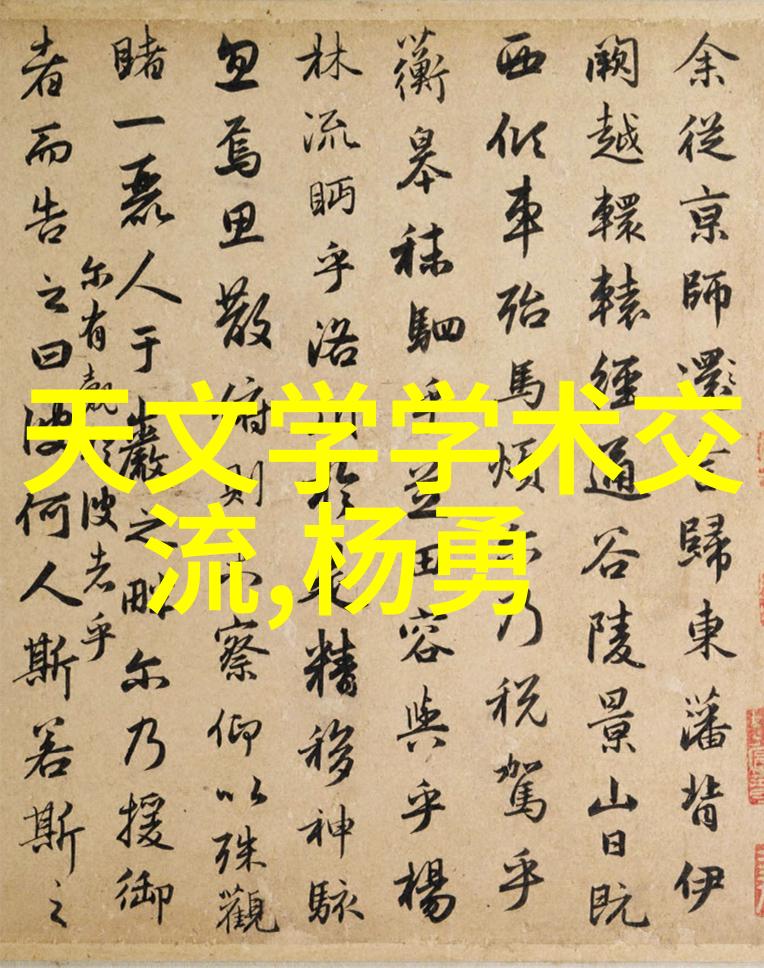 余從京師還言歸東藩背伊
闕越轘轅經通谷陵景山日既
西傾車殆馬煩尓乃税駕乎
蘅皋秣駟乎芝田容與乎楊
林流眄乎洛川於是精移神駭
忽焉思散俯則未察仰以殊觀
睹一麗人于巖之畔尓乃援御
者而告之曰彼何人斯若斯之
尔有覿彼者乎
天文学学术交
流,杨勇